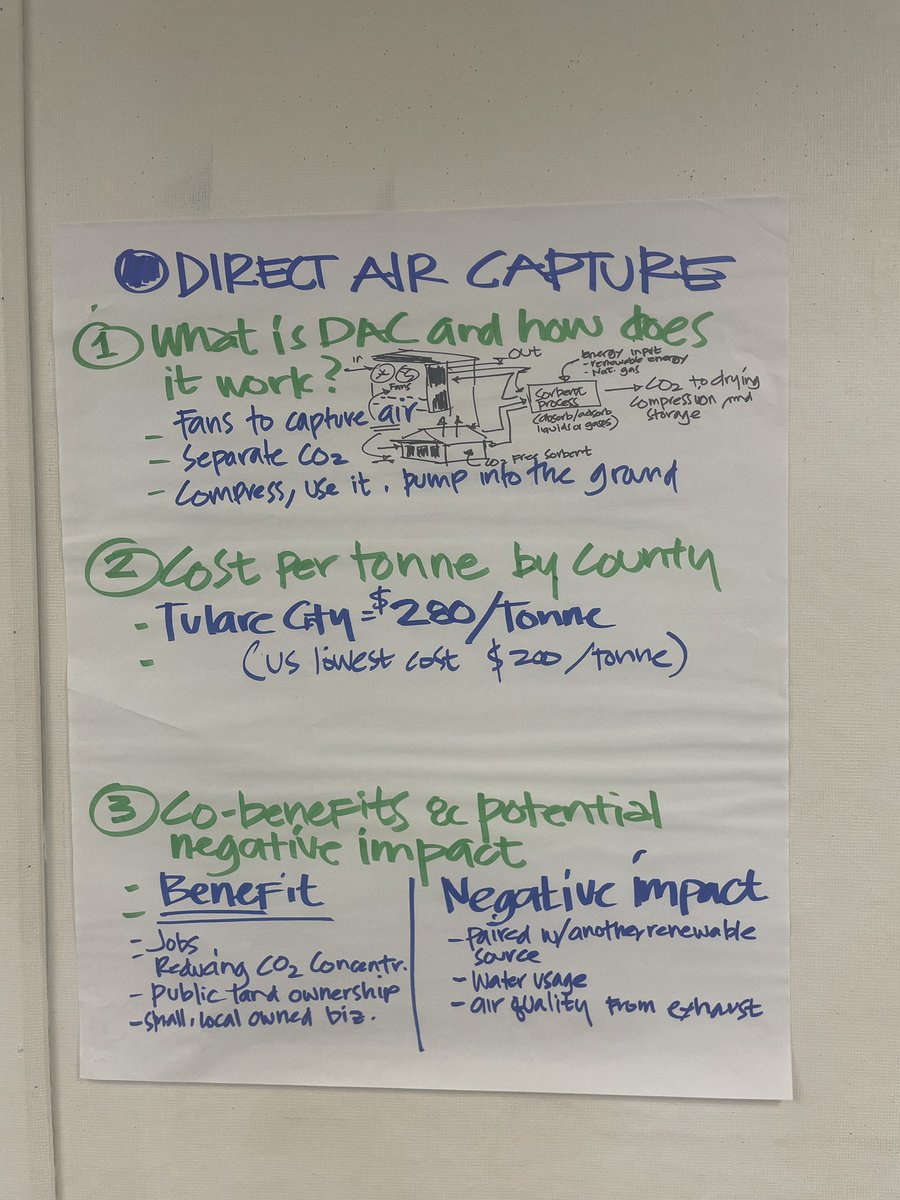 DIRECT AIR CAPTURE
1 What is DAC and how does
it work?
- Fans to capture air
- Separate CO2
- Compress, use it, pump into the ground
in
Fans
OUT
energy input
- renewable energy
- Nat. gas
Sorbent
Process
(absorb/adsorb
liquids or gases)
CO2 to drying
compression and
storage
CO2 Free Sorbent
2 Cost per tonne by county
- Tulare = $280/Tonne
- (US lowest cost $200/tonne)
3 Co-benefits & potential
negative impact
- Benefit
-
- Jobs
- Reducing CO2 Concentr.
- Public land ownership
- small, local owned biz.
Negative impact
- Paired w/another renewable
source
- Water usage
- air quality from exhaust